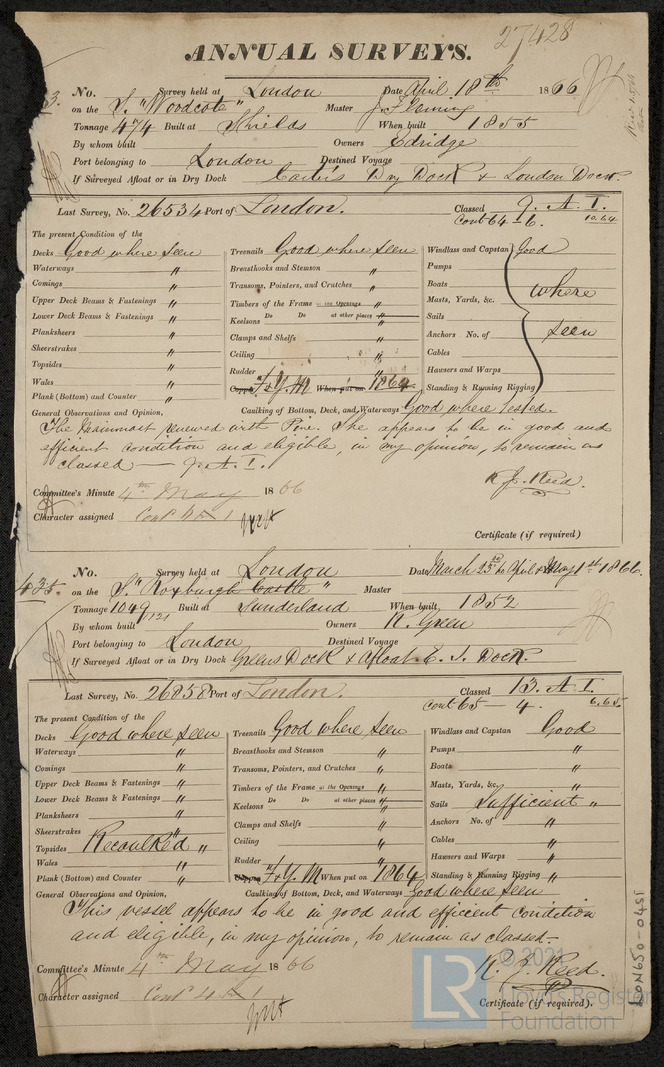 27428
ANNUAL SURVEYS.
No. Survey held at London Date April 18th 1866
on the S. "Woodcote" Master J. Fleming
Tonnage 474 Built at Shields When built 1855
By whom built Owners Edridge
Port belonging to London Destined Voyage
If Surveyed Afloat or in Dry Dock Carter's Dry Dock & London Dock
Last Survey, No. 26534 Port of London. Classed 9. A. I.
Cont 64 - 6. 10.64
The present Condition of the
Decks Good where seen
Waterways "
Comings "
Upper Deck Beams & Fastenings "
Lower Deck Beams & Fastenings "
Planksheers "
Sheerstrakes "
Topsides "
Wales "
Plank (Bottom) and Counter "
Treenails Good where seen
Breasthooks and Stemson "
Transoms, Pointers, and Crutches "
Timbers of the Frame at the Openings "
Do Do at other places
Keelsons "
Clamps and Shelfs "
Ceiling "
Rudder "
Copper F & Y. M When put on 1864
Windlass and Capstan Good
Pumps
Boats where
Masts, Yards, &c.
Sails
Anchors No. of seen
Cables
Hawsers and Warps
Standing & Running Rigging
General Observations and Opinion, Caulking of Bottom, Deck, and Waterways Good where tested.
The Mainmast renewed with Pine. She appears to be in good and
efficient condition and eligible, in my opinion, to remain as
classed — 9. A. I.
R. J. Reed.
Committee's Minute 4th May 1866
Character assigned Cont 4 A 1
Certificate (if required)
435. No. Survey held at London Date March 23rd to April & May 1st 1866.
on the S. "Roxburgh Castle" Master
Tonnage 1049 Built at Sunderland When built, 1852
1121
By whom built Owners R. Green
Port belonging to London Destined Voyage
If Surveyed Afloat or in Dry Dock Greens Dock & Afloat E. I. Dock.
Last Survey, No. 26858 Port of London. Classed 13. A. I.
Cont 65 - 4. 6.65.
The present Condition of the
Decks Good where seen
Waterways "
Comings "
Upper Deck Beams & Fastenings "
Lower Deck Beams & Fastenings "
Planksheers "
Sheerstrakes "
Topsides Recaulked "
Wales "
Plank (Bottom) and Counter "
Treenails Good where seen
Breasthooks and Stemson "
Transoms, Pointers, and Crutches "
Timbers of the Frame at the Openings "
Do Do at other places
Keelsons "
Clamps and Shelfs "
Ceiling "
Rudder "
F & Y. M When put on 1864
Windlass and Capstan Good
Pumps "
Boats "
Masts, Yards, &c. "
Sails Sufficient "
Anchors No. of "
Cables "
Hawsers and Warps "
Standing & Running Rigging "
General Observations and Opinion, Caulking of Bottom, Deck, and Waterways Good where seen
This vessel appears to be in good and efficient condition
and eligible, in my opinion, to remain as classed.
R. J. Reed.
Committee's Minute 4th May 1866
Character assigned Cont 4 A 1
Certificate (if required).
LON650-0451
© 2021
LR
Lloyd's Register
Foundation